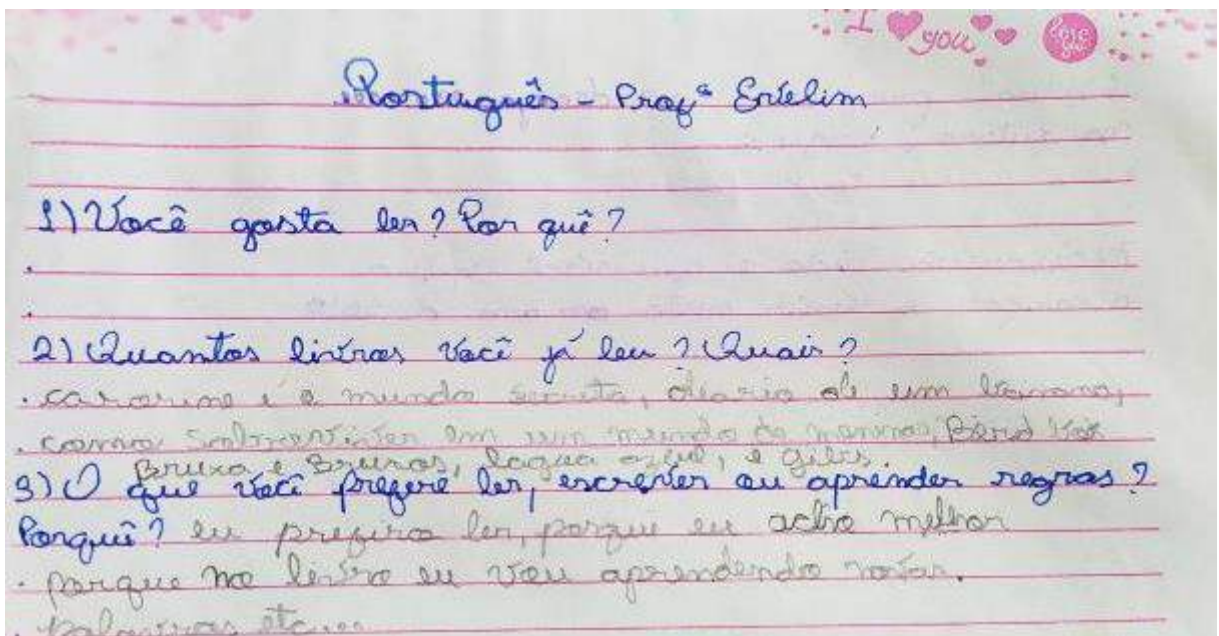 I you
love you
Português - Profª Erielim
1) Você gosta ler? Por quê?
2) Quantos livros você já leu? Quais?
. e o mundo secreto, diario de um banana,
. como sobreviver em um mundo de meninos, Bird Box
Bruxa e Bruxos, lagoa azul, e
3) O que você prefere ler, escrever ou aprender regras?
Porquê? eu prefiro ler, porque eu acho melhor
. porque no livro eu vou aprendendo novas.
. palavras etc...